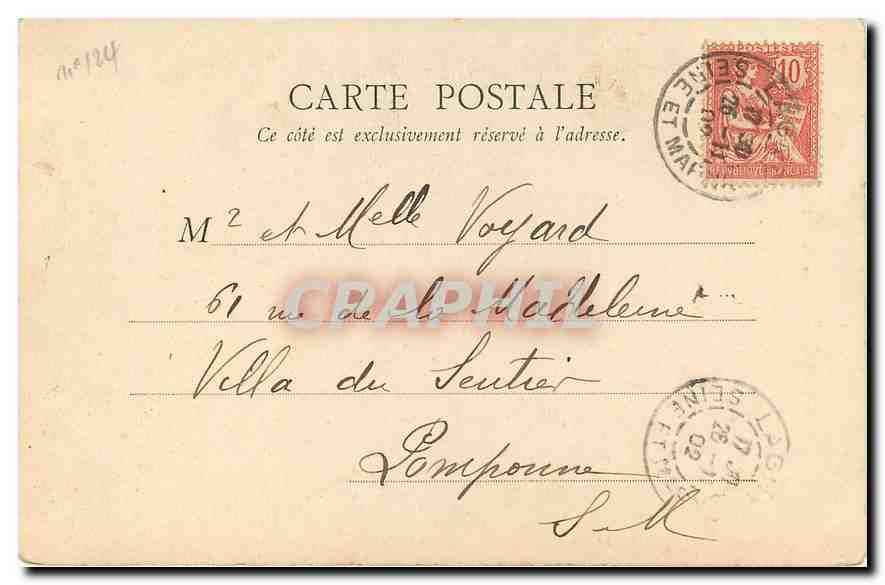 nº 124
POSTES
10
RÉPUBLIQUE FRANÇAISE
SEINE ET MARNE
17 30
26 - 11
02
CARTE POSTALE
Ce côté est exclusivement réservé à l'adresse.
Mr et Melle Voyard
61 rue de la Madeleine
CRAPHIL
Villa du Sentier
Pomponne
S-M
LAGNY
SEINE ET M
02